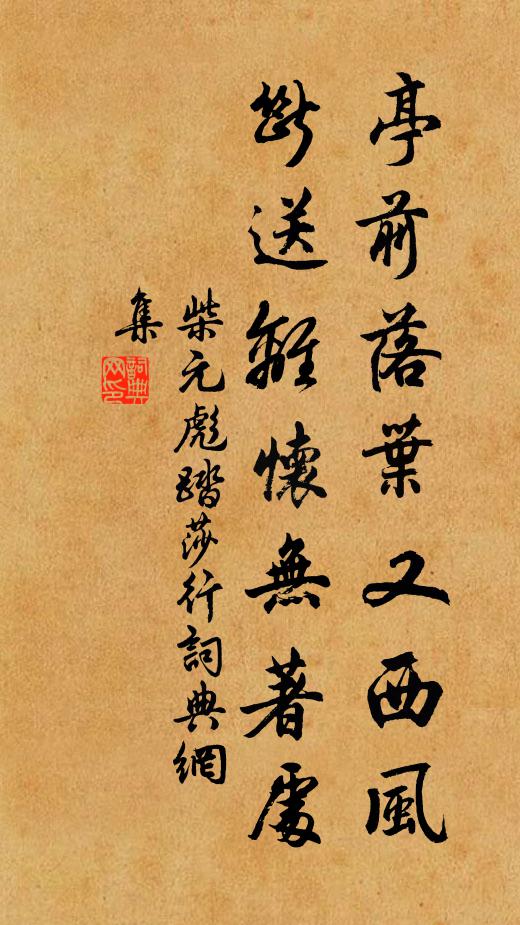 亭前落葉又西風
斷送離懷無著處
柴元彪踏莎行詞典網
集
詞典網印